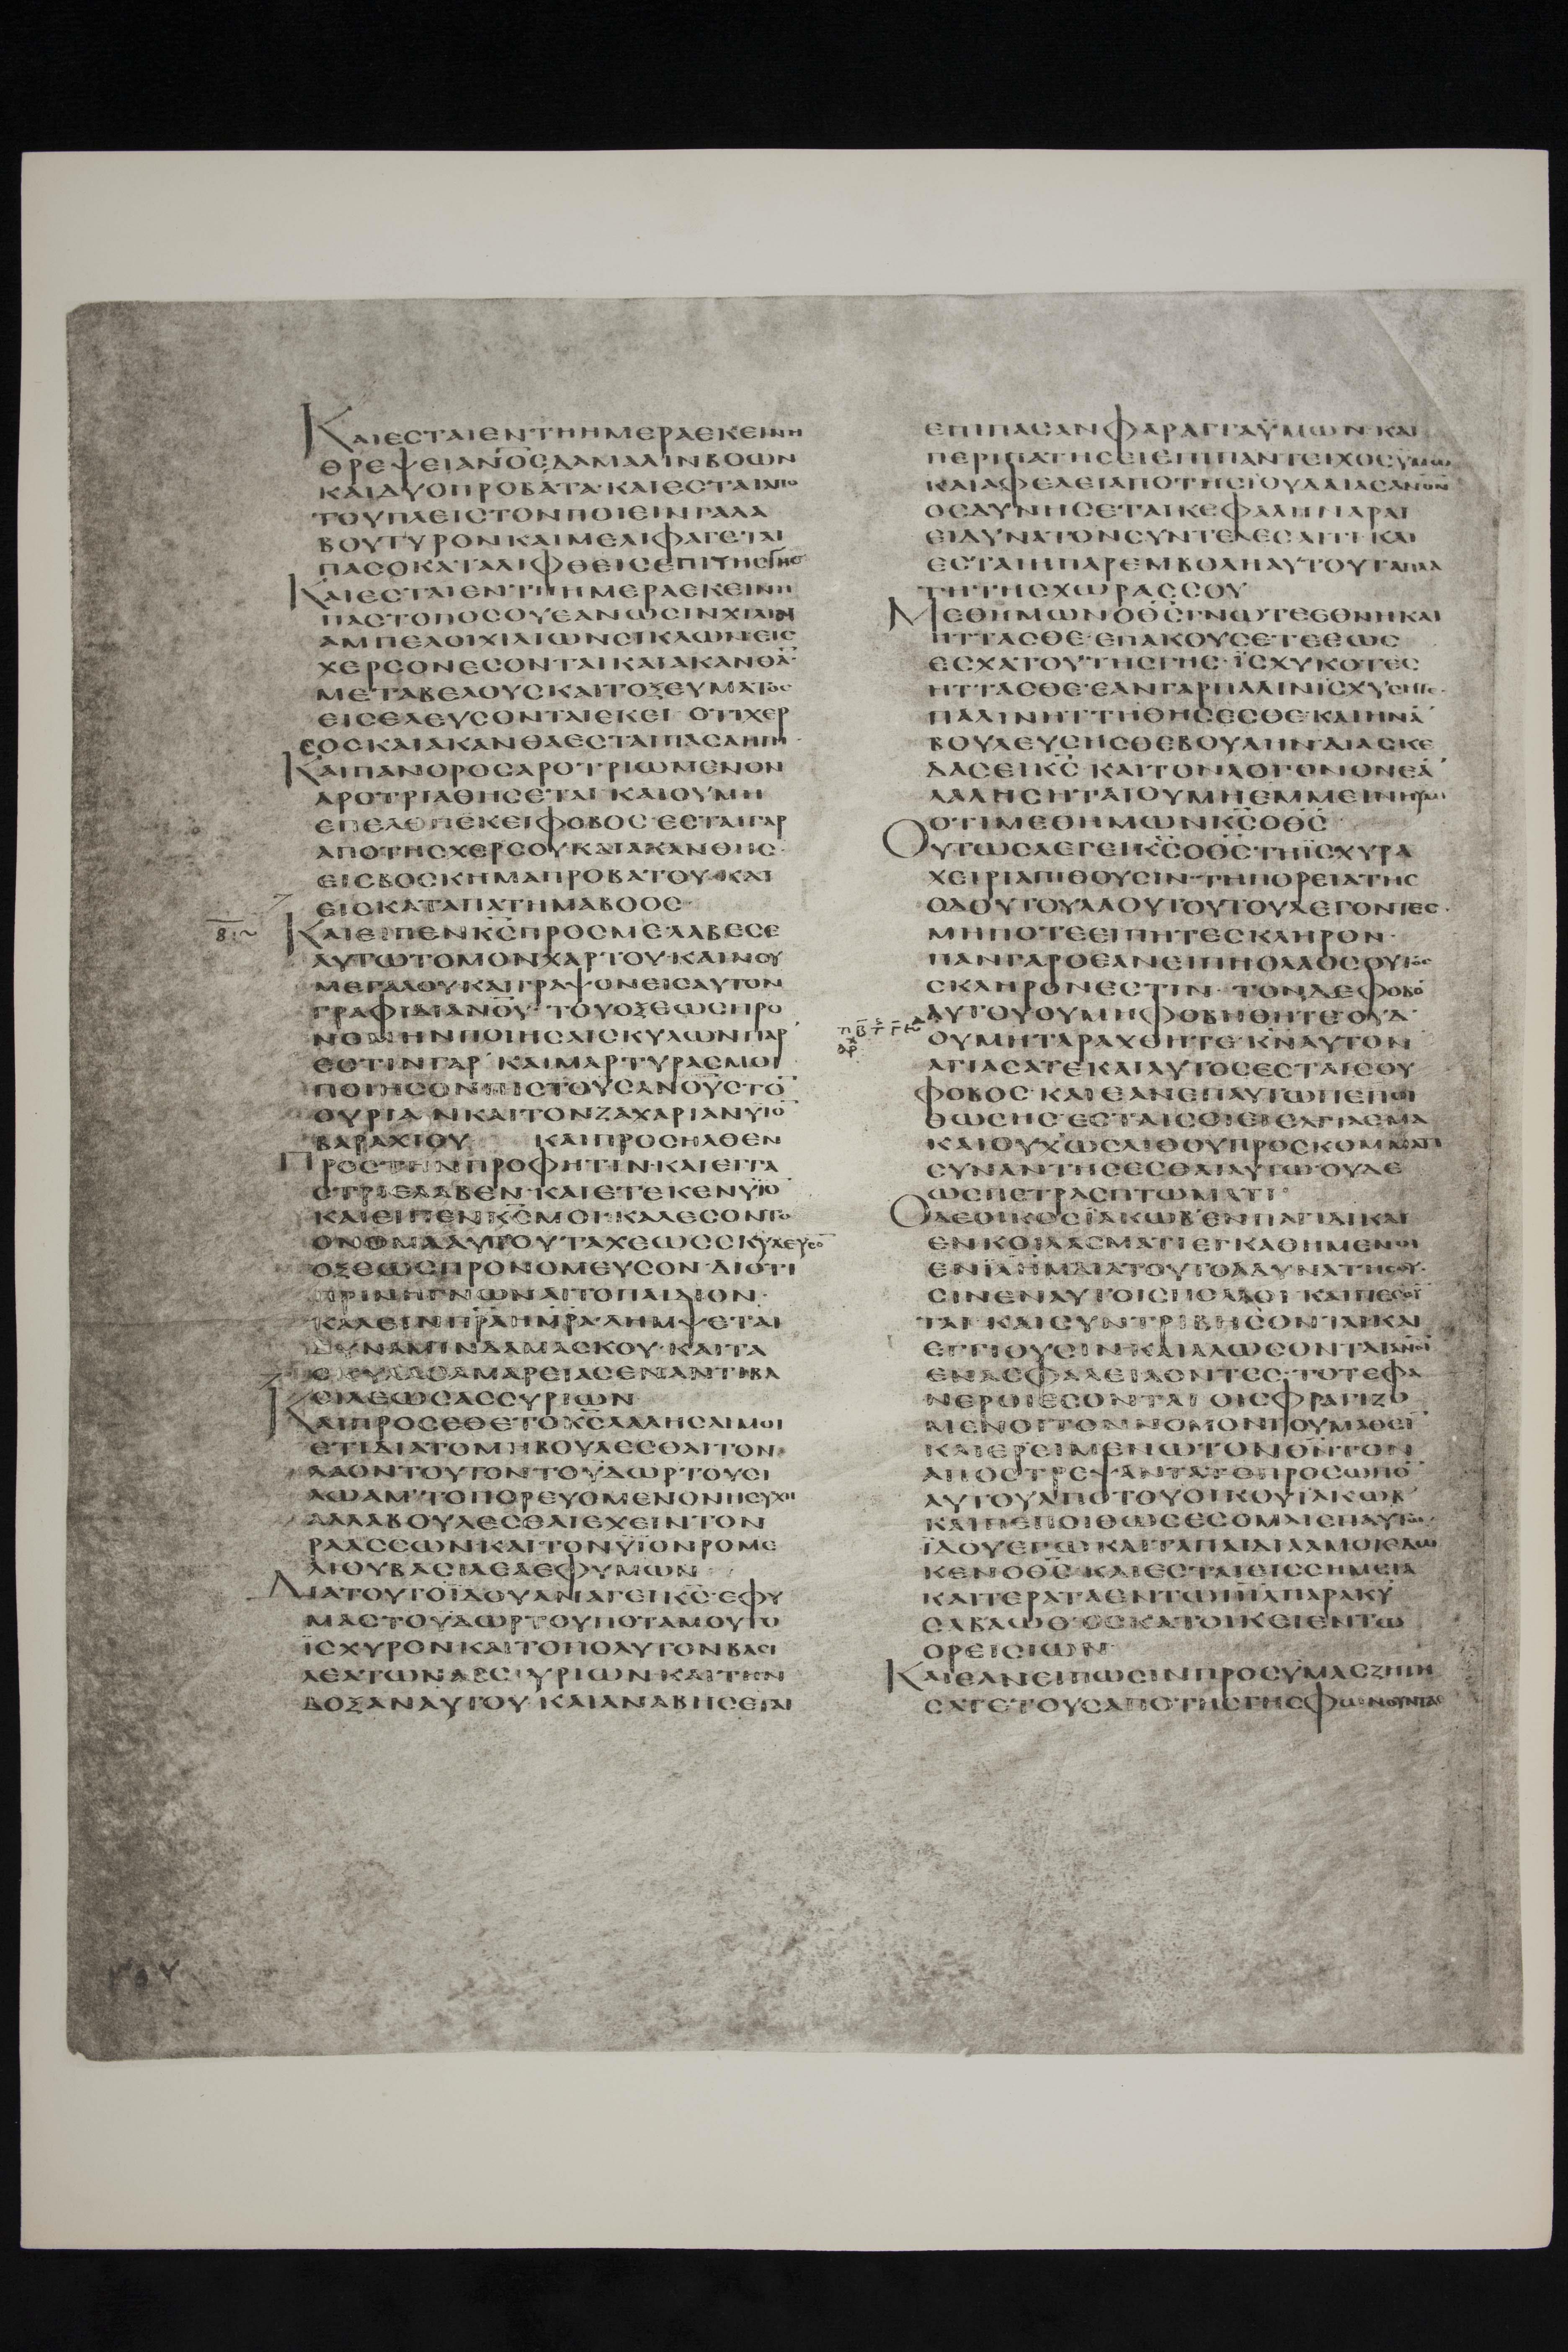 ΚΑΙΕΣΤΑΙΕΝΤΗΗΜΕΡΑΕΚΕΙΝΗ
ΘΡΕΨΕΙΑΝΟΣΔΑΜΑΛΙΝΒΟΩΝ
ΚΑΙΔΥΟΠΡΟΒΑΤΑ·ΚΑΙΕΣΤΑΙΑΠΟ
ΤΟΥΠΛΕΙΣΤΟΝΠΟΙΕΙΝΓΑΛΑ
ΒΟΥΤΥΡΟΝΚΑΙΜΕΛΙΦΑΓΕΤΑΙ
ΠΑΣΟΚΑΤΑΛΙΦΘΕΙΣΕΠΙΤΗΣΓΗΣ·
ΚΑΙΕΣΤΑΙΕΝΤΗΗΜΕΡΑΕΚΕΙΝΗ
ΠΑΣΤΟΠΟΣΟΥΕΑΝΩΣΙΝΧΙΛΙΑΙ
ΑΜΠΕΛΟΙΧΙΛΙΩΝΣΙΚΛΩΝΕΙΣ
ΧΕΡΣΟΝΕΣΟΝΤΑΙΚΑΙΑΚΑΝΘΑ̅·
ΜΕΤΑΒΕΛΟΥΣΚΑΙΤΟΞΕΥΜΑΤΟΣ
ΕΙΣΕΛΕΥΣΟΝΤΑΙΕΚΕΙ·ΟΤΙΧΕΡ
ΣΟΣΚΑΙΑΚΑΝΘΑΕΣΤΑΙΠΑΣΑΗΓΗ·
ΚΑΙΠΑΝΟΡΟΣΑΡΟΤΡΙΩΜΕΝΟΝ
ΑΡΟΤΡΙΑΘΗΣΕΤΑΙ·ΚΑΙΟΥΜΗ
ΕΠΕΛΘΗΕΚΕΙΦΟΒΟΣ·ΕΣΤΑΙΓΑΡ
ΑΠΟΤΗΣΧΕΡΣΟΥΚΑΙΑΚΑΝΘΗΣ·
ΕΙΣΒΟΣΚΗΜΑΠΡΟΒΑΤΟΥ·ΚΑΙ
ΕΙΣΚΑΤΑΠΑΤΗΜΑΒΟΟΣ·
ΚΑΙΕΙΠΕΝΚ̅Σ̅ΠΡΟΣΜΕ·ΛΑΒΕΣΕ
ΑΥΤΩΤΟΜΟΝΧΑΡΤΟΥ·ΚΑΙΝΟΥ
ΜΕΓΑΛΟΥΚΑΙΓΡΑΨΟΝΕΙΣΑΥΤΟΝ
ΓΡΑΦΙΔΙΑΝΟΥ·ΤΟΥΟΞΕΩΣΠΡΟ
ΝΟΜΗΝΠΟΙΗΣΑΙΣΚΥΛΩΝΠΑΡ
ΕΣΤΙΝΓΑΡ·ΚΑΙΜΑΡΤΥΡΑΣΜΟΙ
ΠΟΙΗΣΟΝΠΙΣΤΟΥΣΑΝΟΥΣΤΟ̅
ΟΥΡΙΑΝΚΑΙΤΟΝΖΑΧΑΡΙΑΝΥΙΟ̅
ΒΑΡΑΧΙΟΥ ΚΑΙΠΡΟΣΗΛΘΕΝ
ΠΡΟΣΤΗΝΠΡΟΦΗΤΙΝ·ΚΑΙΕΓΓΑ
ΣΤΡΙΕΛΑΒΕΝ·ΚΑΙΕΤΕΚΕΝΥΙΟ̅
ΚΑΙΕΙΠΕΝΚ̅Σ̅ΜΟΙ·ΚΑΛΕΣΟΝΤΟ
ΟΝΟΜΑΑΥΤΟΥΤΑΧΕΩΣΣΚΥΛΕΥΣΟ̅
ΟΞΕΩΣΠΡΟΝΟΜΕΥΣΟΝ·ΔΙΟΤΙ
ΠΡΙΝΗΓΝΩΝΑΙΤΟΠΑΙΔΙΟΝ·
ΚΑΛΕΙΝΠ̅Ρ̅Α̅ΗΜ̅Ρ̅Α̅·ΛΗΜΨΕΤΑΙ
ΔΥΝΑΜΙΝΔΑΜΑΣΚΟΥ·ΚΑΙΤΑ
ΣΚΥΛΑΣΑΜΑΡΕΙΑΣΕΝΑΝΤΙΒΑ
ΣΙΛΕΩΣΑΣΣΥΡΙΩΝ
ΚΑΙΠΡΟΣΕΘΕΤΟΚ̅Σ̅ΛΑΛΗΣΑΙΜΟΙ
ΕΤΙΔΙΑΤΟΜΗΒΟΥΛΕΣΘΑΙΤΟΝ
ΛΑΟΝΤΟΥΤΟΝΤΟΥΔΩΡΤΟΥΣΙ
ΛΩΑΜ·ΤΟΠΟΡΕΥΟΜΕΝΟΝΗΣΥΧΗ
ΑΛΛΑΒΟΥΛΕΣΘΑΙΕΧΕΙΝΤΟΝ
ΡΑΑΣΣΩΝΚΑΙΤΟΝΥΙΟΝΡΟΜΕ
ΛΙΟΥΒΑΣΙΛΕΑΕΦΥΜΩΝ
ΔΙΑΤΟΥΤΟΙΔΟΥΑΝΑΓΕΙΚ̅Σ̅·ΕΦΥ
ΜΑΣΤΟΥΔΩΡΤΟΥΠΟΤΑΜΟΥΤΟ
ΙΣΧΥΡΟΝΚΑΙΤΟΠΟΛΥΤΟΝΒΑΣΙ
ΛΕΑΤΩΝΑΣΣΥΡΙΩΝΚΑΙΤΗΝ
ΔΟΞΑΝΑΥΤΟΥ·ΚΑΙΑΝΑΒΗΣΕΤΑΙ
ΕΠΙΠΑΣΑΝΦΑΡΑΓΓΑΥΜΩΝ·ΚΑΙ
ΠΕΡΙΠΑΤΗΣΕΙΕΠΙΠΑΝΤΕΙΧΟΣΥΜΩΝ
ΚΑΙΑΦΕΛΕΙΑΠΟΤΗΣΙΟΥΔΑΙΑΣΑΝΟΝ
ΟΣΔΥΝΗΣΕΤΑΙΚΕΦΑΛΗΝΑΡΑΙ
ΕΙΔΥΝΑΤΟΝΣΥΝΤΕΛΕΣΑΙΤΙ·ΚΑΙ
ΕΣΤΑΙΗΠΑΡΕΜΒΟΛΗΑΥΤΟΥ
ΤΗΤΗΣΧΩΡΑΣΣΟΥ
ΜΕΘΗΜΩΝΟΘ̅Σ̅ΓΝΩΤΕΕΘΝΗΚΑΙ
ΗΤΤΑΣΘΕ·ΕΠΑΚΟΥΣΕΤΕΕΩΣ
ΕΣΧΑΤΟΥΤΗΣΓΗΣ·ΙΣΧΥΚΟΤΕΣ
ΗΤΤΑΣΘΕ·ΕΑΝΓΑΡΠΑΛΙΝΙΣΧΥΣΗΤΕ·
ΠΑΛΙΝΗΤΤΗΘΗΣΕΣΘΕ·ΚΑΙΗΝΑ̅
ΒΟΥΛΕΥΣΗΣΘΕΒΟΥΛΗΝΔΙΑΣΚΕ
ΔΑΣΕΙΚ̅Σ̅·ΚΑΙΤΟΝΛΟΓΟΝΟΝΕΑ̅
ΛΑΛΗΣΗΤΑΙΟΥΜΗΕΜΜΕΙΝΗ
ΟΤΙΜΕΘΗΜΩΝΚ̅Σ̅ΟΘ̅Σ̅
ΟΥΤΩΣΛΕΓΕΙΚ̅Σ̅ΟΘ̅Σ̅ΤΗΙΣΧΥΡΑ
ΧΕΙΡΙΑΠΙΘΟΥΣΙΝ·ΤΗΠΟΡΕΙΑΤΗΣ
ΟΔΟΥΤΟΥΛΑΟΥΤΟΥΤΟΥΛΕΓΟΝΤΕΣ·
ΜΗΠΟΤΕΕΙΠΗΤΕΣΚΛΗΡΟΝ·
ΠΑΝΓΑΡΟΕΑΝΕΙΠΗΟΛΑΟΣΟΥΤΟΣ
ΣΚΛΗΡΟΝΕΣΤΙΝ·ΤΟΝΔΕΦΟΒΟ̅
ΑΥΤΟΥΟΥΜΗΦΟΒΗΘΗΤΕΟΥΔ
ΟΥΜΗΤΑΡΑΧΘΗΤΕ·Κ̅Ν̅ΑΥΤΟΝ
ΑΓΙΑΣΑΤΕΚΑΙΑΥΤΟΣΕΣΤΑΙΣΟΥ
ΦΟΒΟΣ·ΚΑΙΕΑΝΕΠΑΥΤΩΠΕΠΟΙ
ΘΩΣΗΣ·ΕΣΤΑΙΣΟΙΕΙΣΑΓΙΑΣΜΑ
ΚΑΙΟΥΧΩΣΛΙΘΟΥΠΡΟΣΚΟΜΜΑΤΙ
ΣΥΝΑΝΤΗΣΕΣΘΑΙΑΥΤΩ·ΟΥΔΕ
ΩΣΠΕΤΡΑΣΠΤΩΜΑΤΙ·
ΟΔΕΟΙΚΟΣΙΑΚΩΒΕΝΠΑΓΙΔΙΚΑΙ
ΕΝΚΟΙΛΑΣΜΑΤΙΕΓΚΑΘΗΜΕΝΟΙ
ΕΝΙΛΗΜΔΙΑΤΟΥΤΟΑΔΥΝΑΤΗΣΟΥ
ΣΙΝΕΝΑΥΤΟΙΣΠΟΛΛΟΙ·ΚΑΙΠΕΣΟΥ̅
ΤΑΙ·ΚΑΙΣΥΝΤΡΙΒΗΣΟΝΤΑΙΚΑΙ
ΕΓΓΙΟΥΣΙΝΚΑΙΑΛΩΣΟΝΤΑΙΑΝΟΙ
ΕΝΑΣΦΑΛΕΙΑΟΝΤΕΣ·ΤΟΤΕΦΑ
ΝΕΡΟΙΕΣΟΝΤΑΙ·ΟΙΣΦΡΑΓΙΖΟ
ΜΕΝΟΙΤΟΝΝΟΜΟΝΤΟΥΜΑΘΕΙ̅
ΚΑΙΕΡΕΙΜΕΝΩΤΟΝΘ̅Ν̅ΤΟΝ
ΑΠΟΣΤΡΕΨΑΝΤΑΤΟΠΡΟΣΩΠΟ̅
ΑΥΤΟΥΑΠΟΤΟΥΟΙΚΟΥΙΑΚΩΒ
ΚΑΙΠΕΠΟΙΘΩΣΕΣΟΜΑΙΕΠΑΥΤΩ·
ΙΔΟΥΕΓΩΚΑΙΤΑΠΑΙΔΙΑΑΜΟΙΕΔΩ
ΚΕΝΟΘ̅Σ̅·ΚΑΙΕΣΤΑΙΕΙΣΣΗΜΕΙΑ
ΚΑΙΤΕΡΑΤΑΕΝΤΩΙ̅Η̅Λ̅ΠΑΡΑΚ̅Υ̅
ΣΑΒΑΩΘ·ΟΣΚΑΤΟΙΚΕΙΕΝΤΩ
ΟΡΕΙΣΙΩΝ
ΚΑΙΕΑΝΕΙΠΩΣΙΝΠΡΟΣΥΜΑΣΖΗΤΗ
ΣΑΤΕΤΟΥΣΑΠΟΤΗΣΓΗΣΦΩΝΟΥΝΤΑΣ